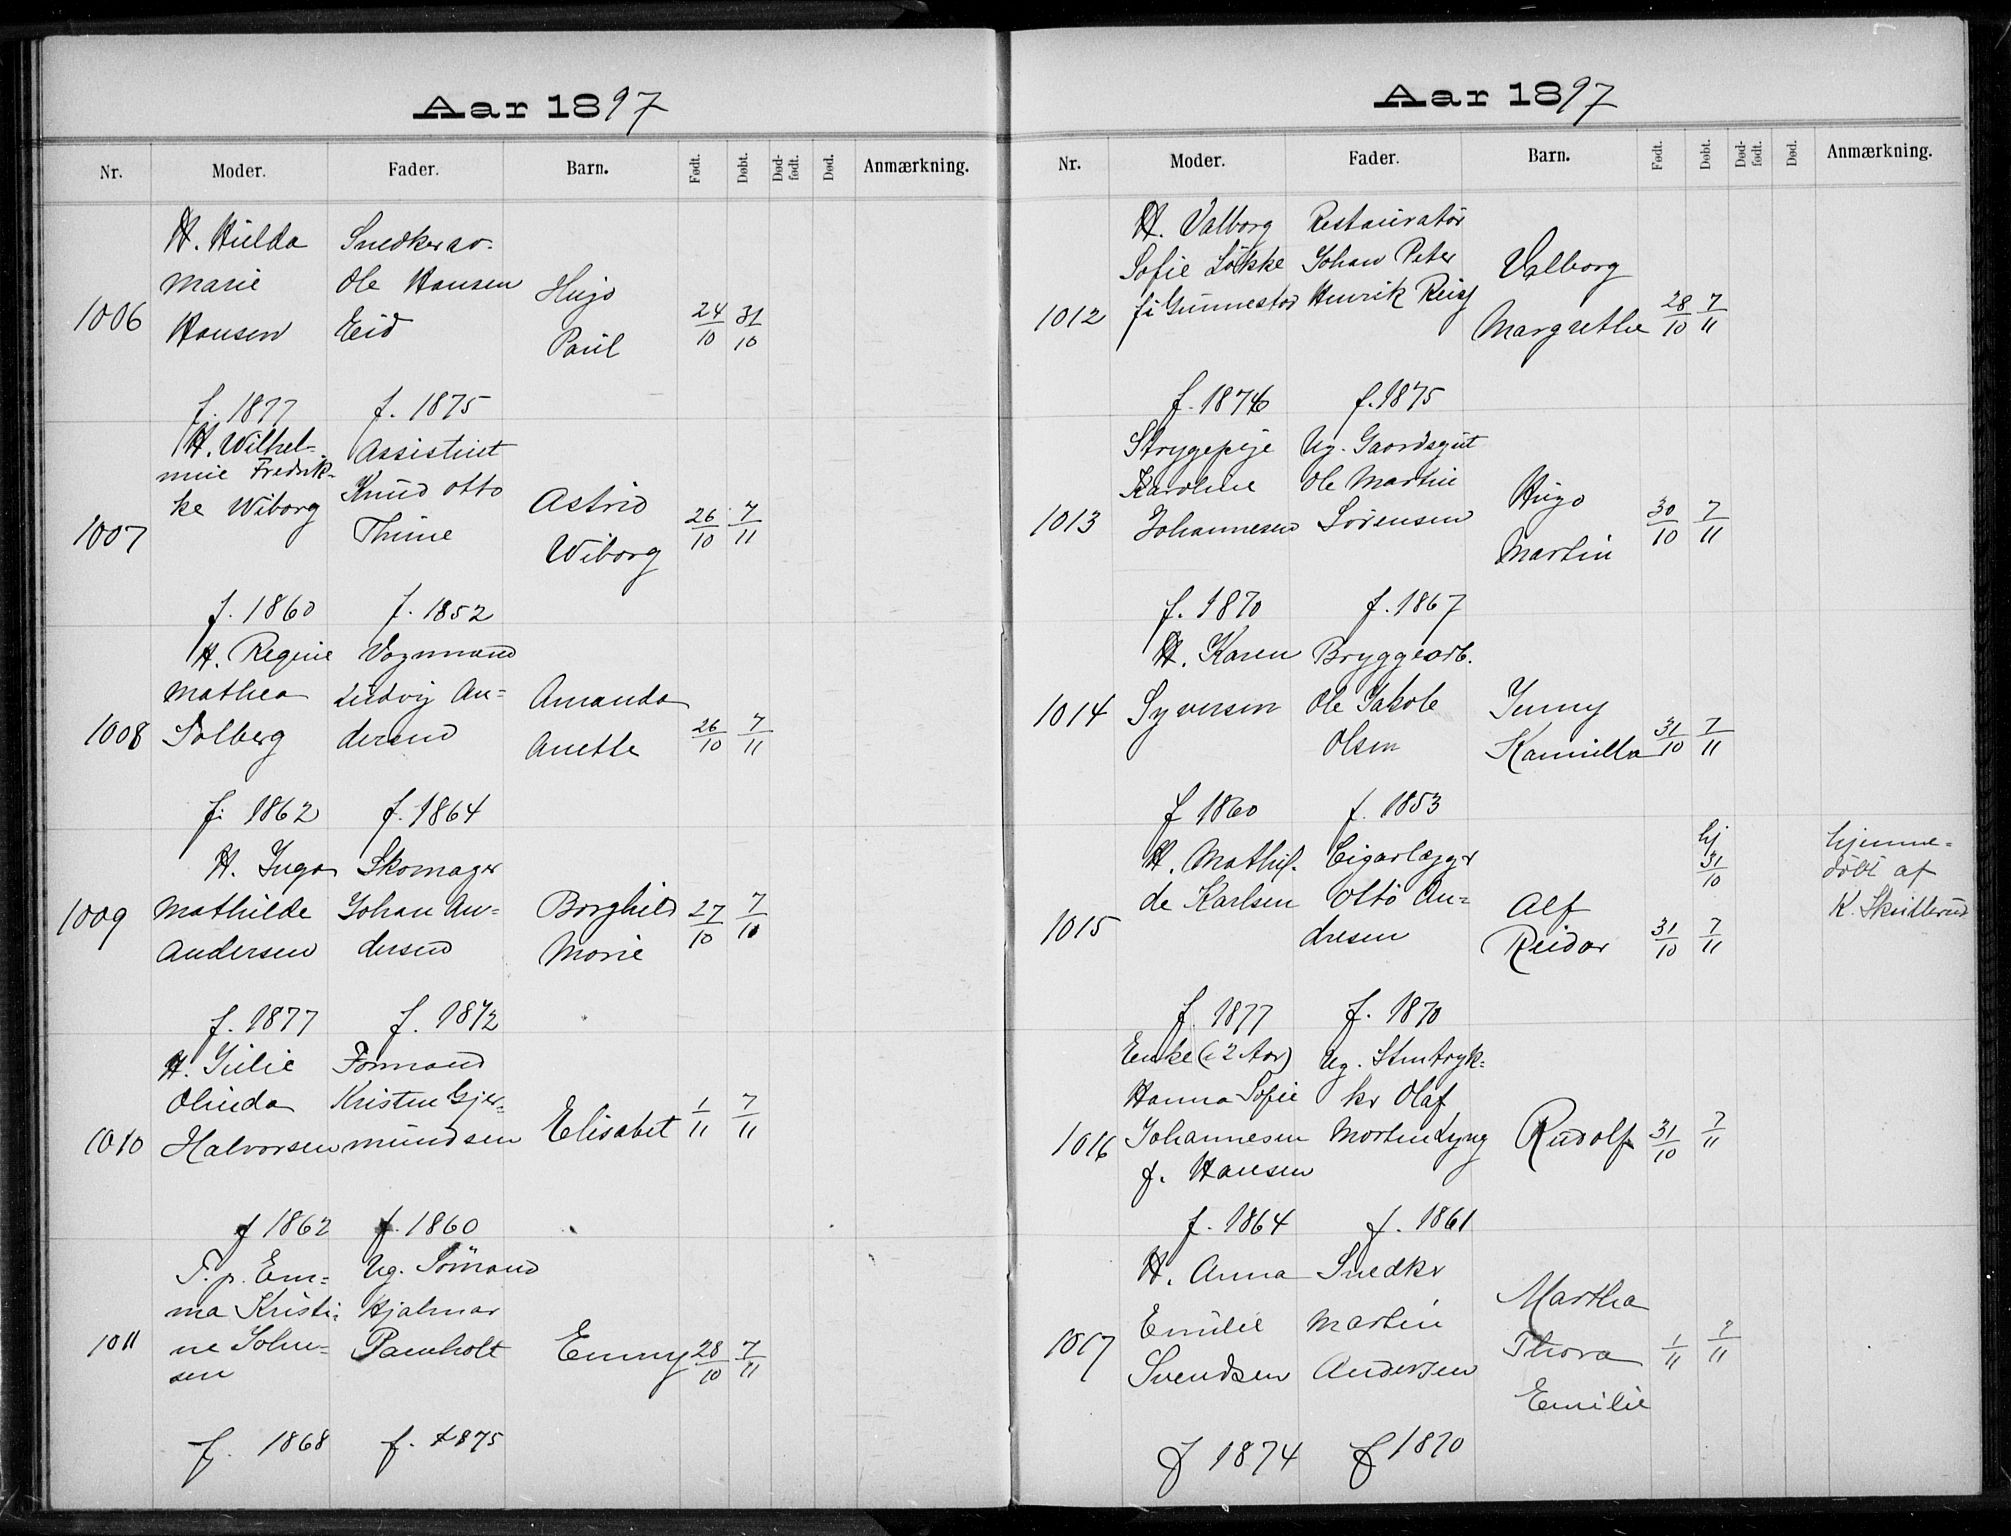 Aar 1897
Nr. Moder. Fader. Barn. Født. Døbt. Død-født. Død. Anmærkning.
1006
H. Hulda
Marie
Hansen
f. 1877
Snedkerav.
Ole Hansen
Eid
f. 1875
Hugo
Paul
24/10 31/10
1007
H. Wilhel-
mine Fredrik-
ke Wiborg
f. 1860
Assistent
Knud Otto
Thime
f. 1852
Astrid
Wiborg
26/10 7/11
1008
H. Regine
Mathea
Solberg
f. 1862
Vognmand
Ludvig An=
dersen
f. 1864
Amanda
Anette
26/10 7/11
1009
H. Inga
Mathilde
Andersen
f. 1877
Skomager
Johan An=
dersen
f. 1872
Borghild
Marie
27/10 7/11
1010
H. Julie
Olinda
Halvorsen
f 1862
Formand
Kristen Gjer=
mundsen
f. 1860
Elisabet
1/11 7/11
1011
T. p. Em=
ma Kristi=
ne John=
sen
f. 1868
Ug. Sömand
Hjalmar
Ramholt
f. 1875
Emmy
28/10 7/11
Aar 1897
Nr. Moder. Fader. Barn. Født. Døbt. Død-født. Død. Anmærkning.
1012
H. Valborg
Sofie Løkke
f. 1876
Restauratør
Johan Peter
Henrik
f. 1875
Valborg
Margrethe
28/10 7/11
1013
Strygepige
Karoline
Johannesen
f. 1870
Ug. Gaardsgut
Ole Martin
Sørensen
f. 1867
Hugo
Martin
30/10 7/11
1014
H. Karen
Syversen
f 1860
Bryggearb.
Ole Jakob
Olsen
f. 1853
Jenny
Kamilla
31/10 7/11
1015
H. Mathil-
de Karlsen
f. 1877
Cigarlægger
Otto An=
dresen
f. 1870
Alf
Reidar
31/10
hj
31/10
7/11
hjemme=
døbt af
K. Skullerud
1016
Enke (i 2 Aar)
Hanna Sofie
Johannesen
f. Hansen
f. 1864
Ug. Stentryk-
ker Olaf
Morten Lyng
f. 1861
Rudolf
31/10 7/11
1017
H. Anna
Emilie
Svendsen
f 1874
Snedker
Martin
Andersen
f 1870
Martha
Thora
Emilie
1/11 7/11